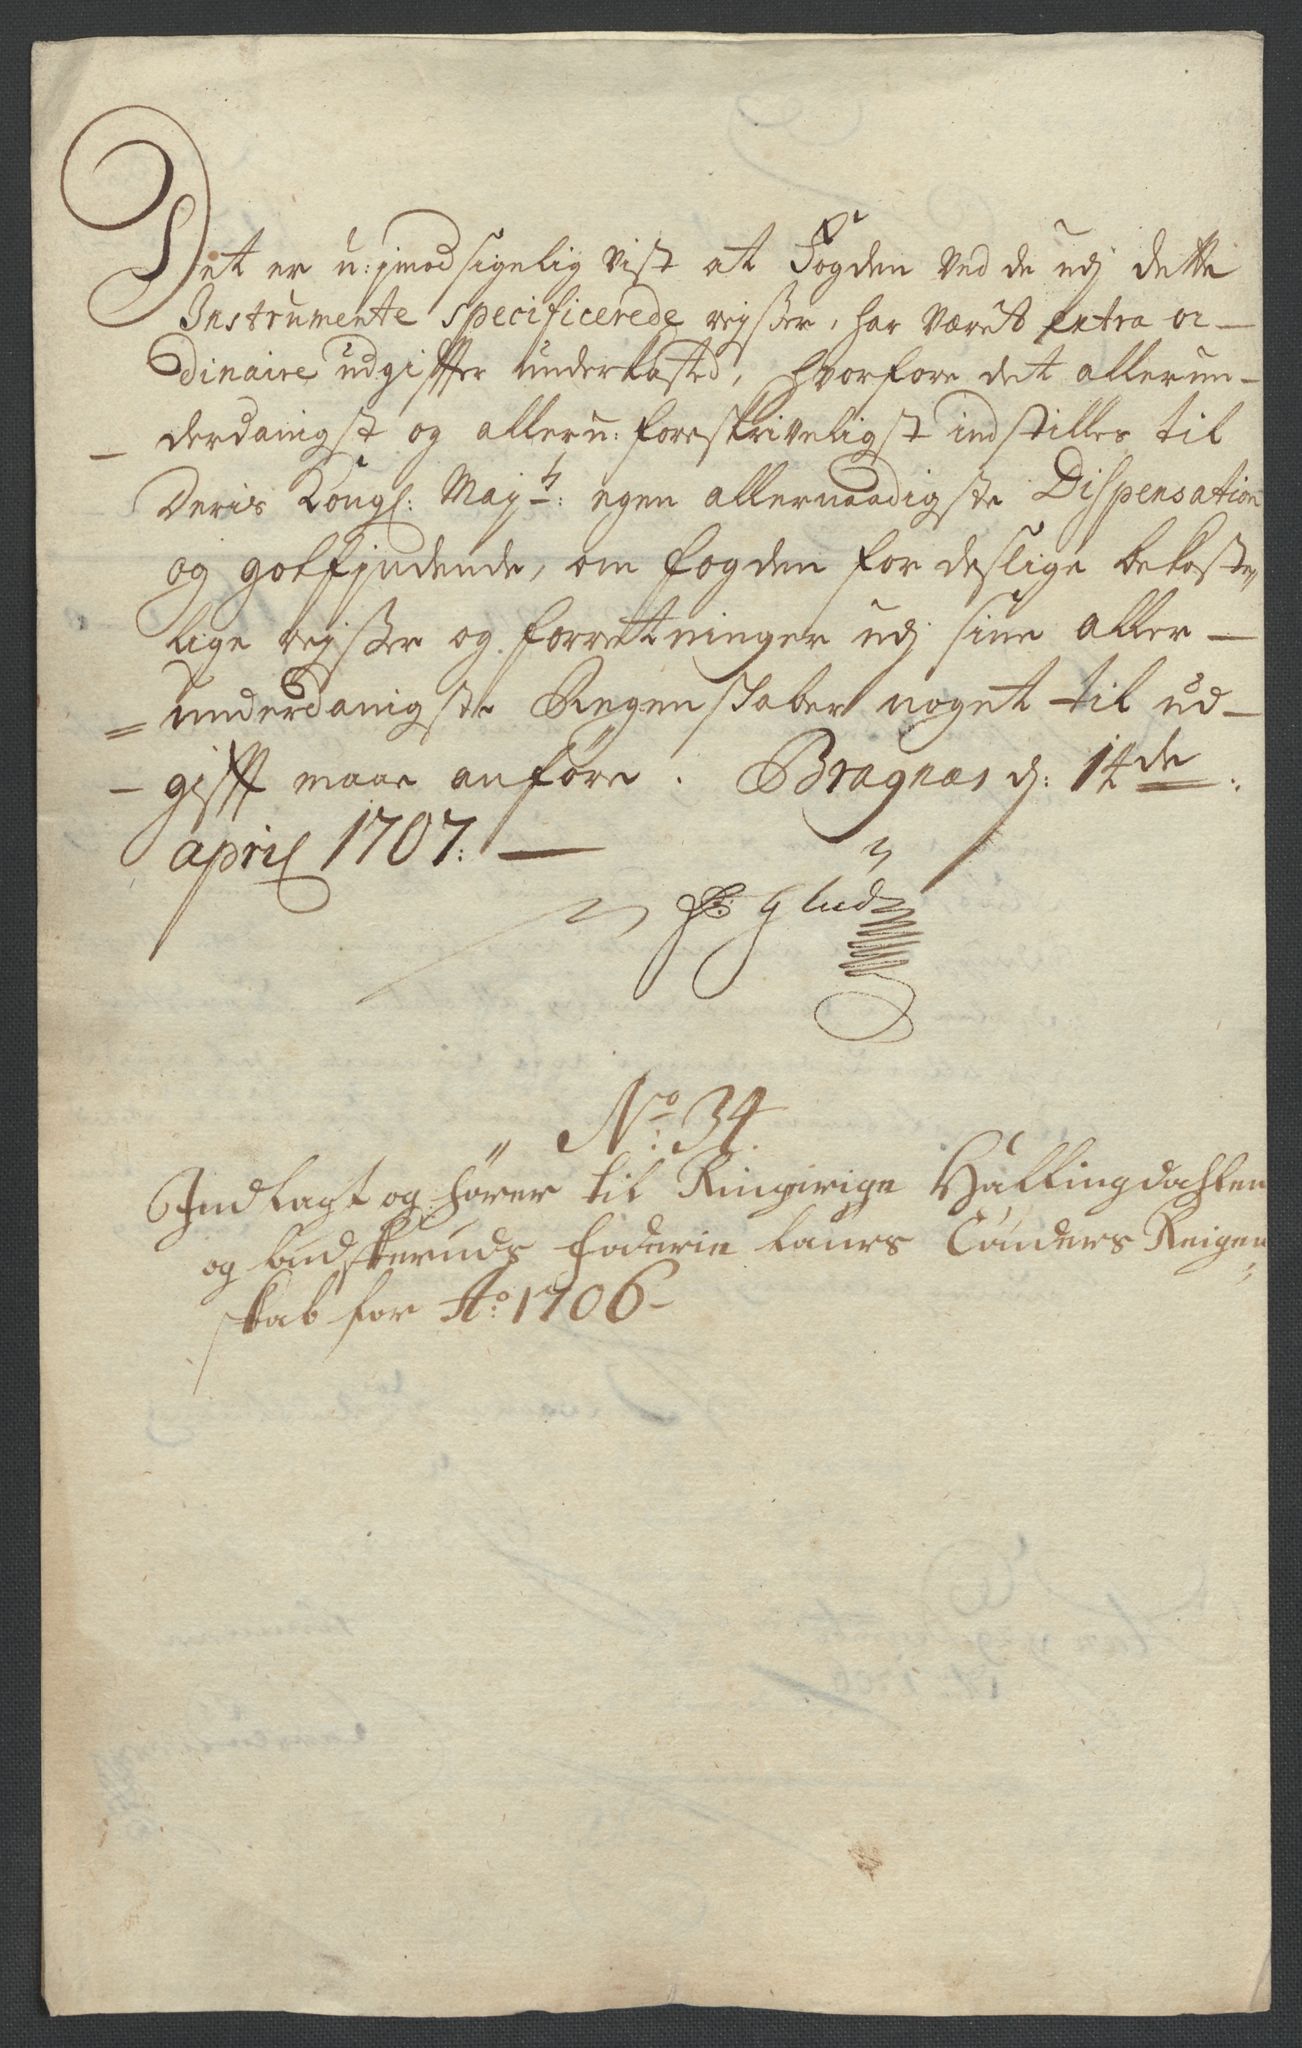 Det er u:jmodsigelig vist at Fogden ved de udj dette
Instrumente specificerede rejsser, har været extra or—
dinaire udgiffter underkasted, hvorfore det allerun—
derdanigst og alleru: foreskriveligst indstilles til
Deris Kongl: Mayts: egen allernaadigste Dispensation
og gotfjndende, om fogden for deslige bekoste,
lige rejsser og forretninger udj sine aller—
underdanigste Regenskaber noget til ud—
gifft maae anføre. Bragnæs dj: 14de:
april 1707:—
Glud
No: 34.
Indlagt og hører til Ringerige Hallingdahlen
og budskeruds foderie Laurs Tønders Reigen
skab for Ao: 1706—